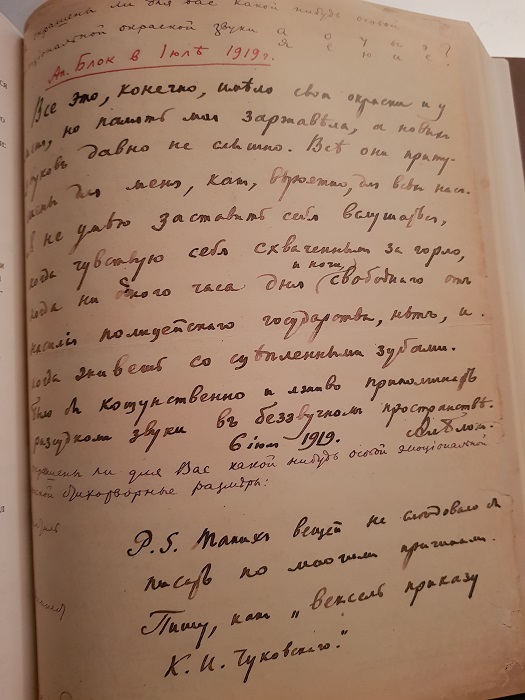 окрашены ли для вас какой нибудь особой
эмоціональной окраской звуки а о у ы э ?
я ё ю и е
Ал. Блок в Iюлѣ 1919 г.
Все это, конечно, имѣло свои окраски и у
меня, но память моя заржавѣла, а новыхъ
звуковъ давно не слышно. Всѣ они приту-
шены для меня, как, вѣроятно, для всѣхъ насъ.
Я не умѣю заставить себя вслушаться,
когда чувствую себя схваченным за горло,
и ночи
когда ни одного часа дня свободнаго отъ
насилія полицейскаго государства, нѣтъ, и
когда живешь со сцѣпленными зубами.
Было бы кощунственно и лживо припоминать
разсудком звуки въ беззвучном пространствѣ.
6 iюля 1919. Ал. Блок.
окрашены ли для Вас какой нибудь особой эмоціональной
окраской стихотворные размѣры:
P. S. Таких вещей не слѣдовало б
писать по многим причинам.
Пишу, как „вексель приказу
К. И. Чуковскаго."